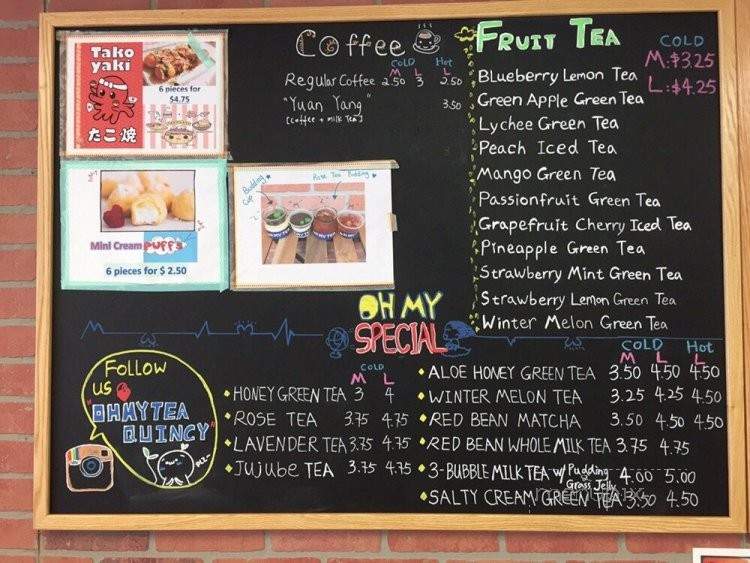 Tako
yaki
たこ焼
6 pieces for
$4.75
Mini Cream puffs
6 pieces for $ 2.50
Budding
Cup
Rose Tea Pudding
Coffee
COLD Hot
M L L
Regular Coffee 2.50 3 2.50
"Yuan Yang" 3.50
[coffee + milk Tea]
FRUIT TEA
COLD
M:$3.25
L:$4.25
Blueberry Lemon Tea
Green Apple Green Tea
Lychee Green Tea
Peach Iced Tea
Mango Green Tea
Passionfruit Green Tea
Grapefruit Cherry Iced Tea
Pineapple Green Tea
Strawberry Mint Green Tea
Strawberry Lemon Green Tea
Winter Melon Green Tea
OH MY
SPECIAL
Follow
us
"OHMYTEA
QUINCY"
COLD
M L
HONEY GREEN TEA 3 4
ROSE TEA 3.75 4.75
LAVENDER TEA 3.75 4.75
JUJUBE TEA 3.75 4.75
COLD Hot
M L L
ALOE HONEY GREEN TEA 3.50 4.50 4.50
WINTER MELON TEA 3.25 4.25 4.50
RED BEAN MATCHA 3.50 4.50 4.50
RED BEAN WHOLE MILK TEA 3.75 4.75
3-BUBBLE MILK TEA w/ Pudding Grass Jelly 4.00 5.00
SALTY CREAM GREEN TEA 3.50 4.50